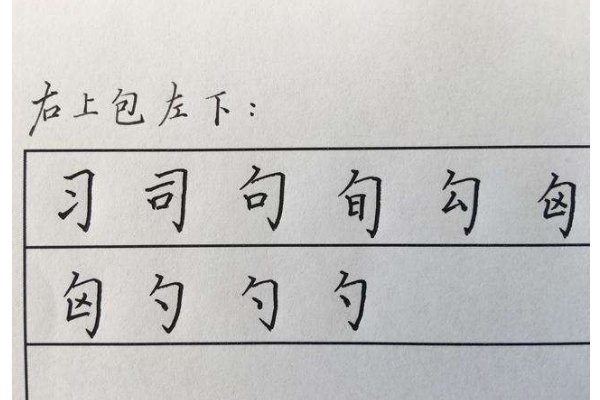 右上包左下:
习司句旬勾匈
匈勺勺勺